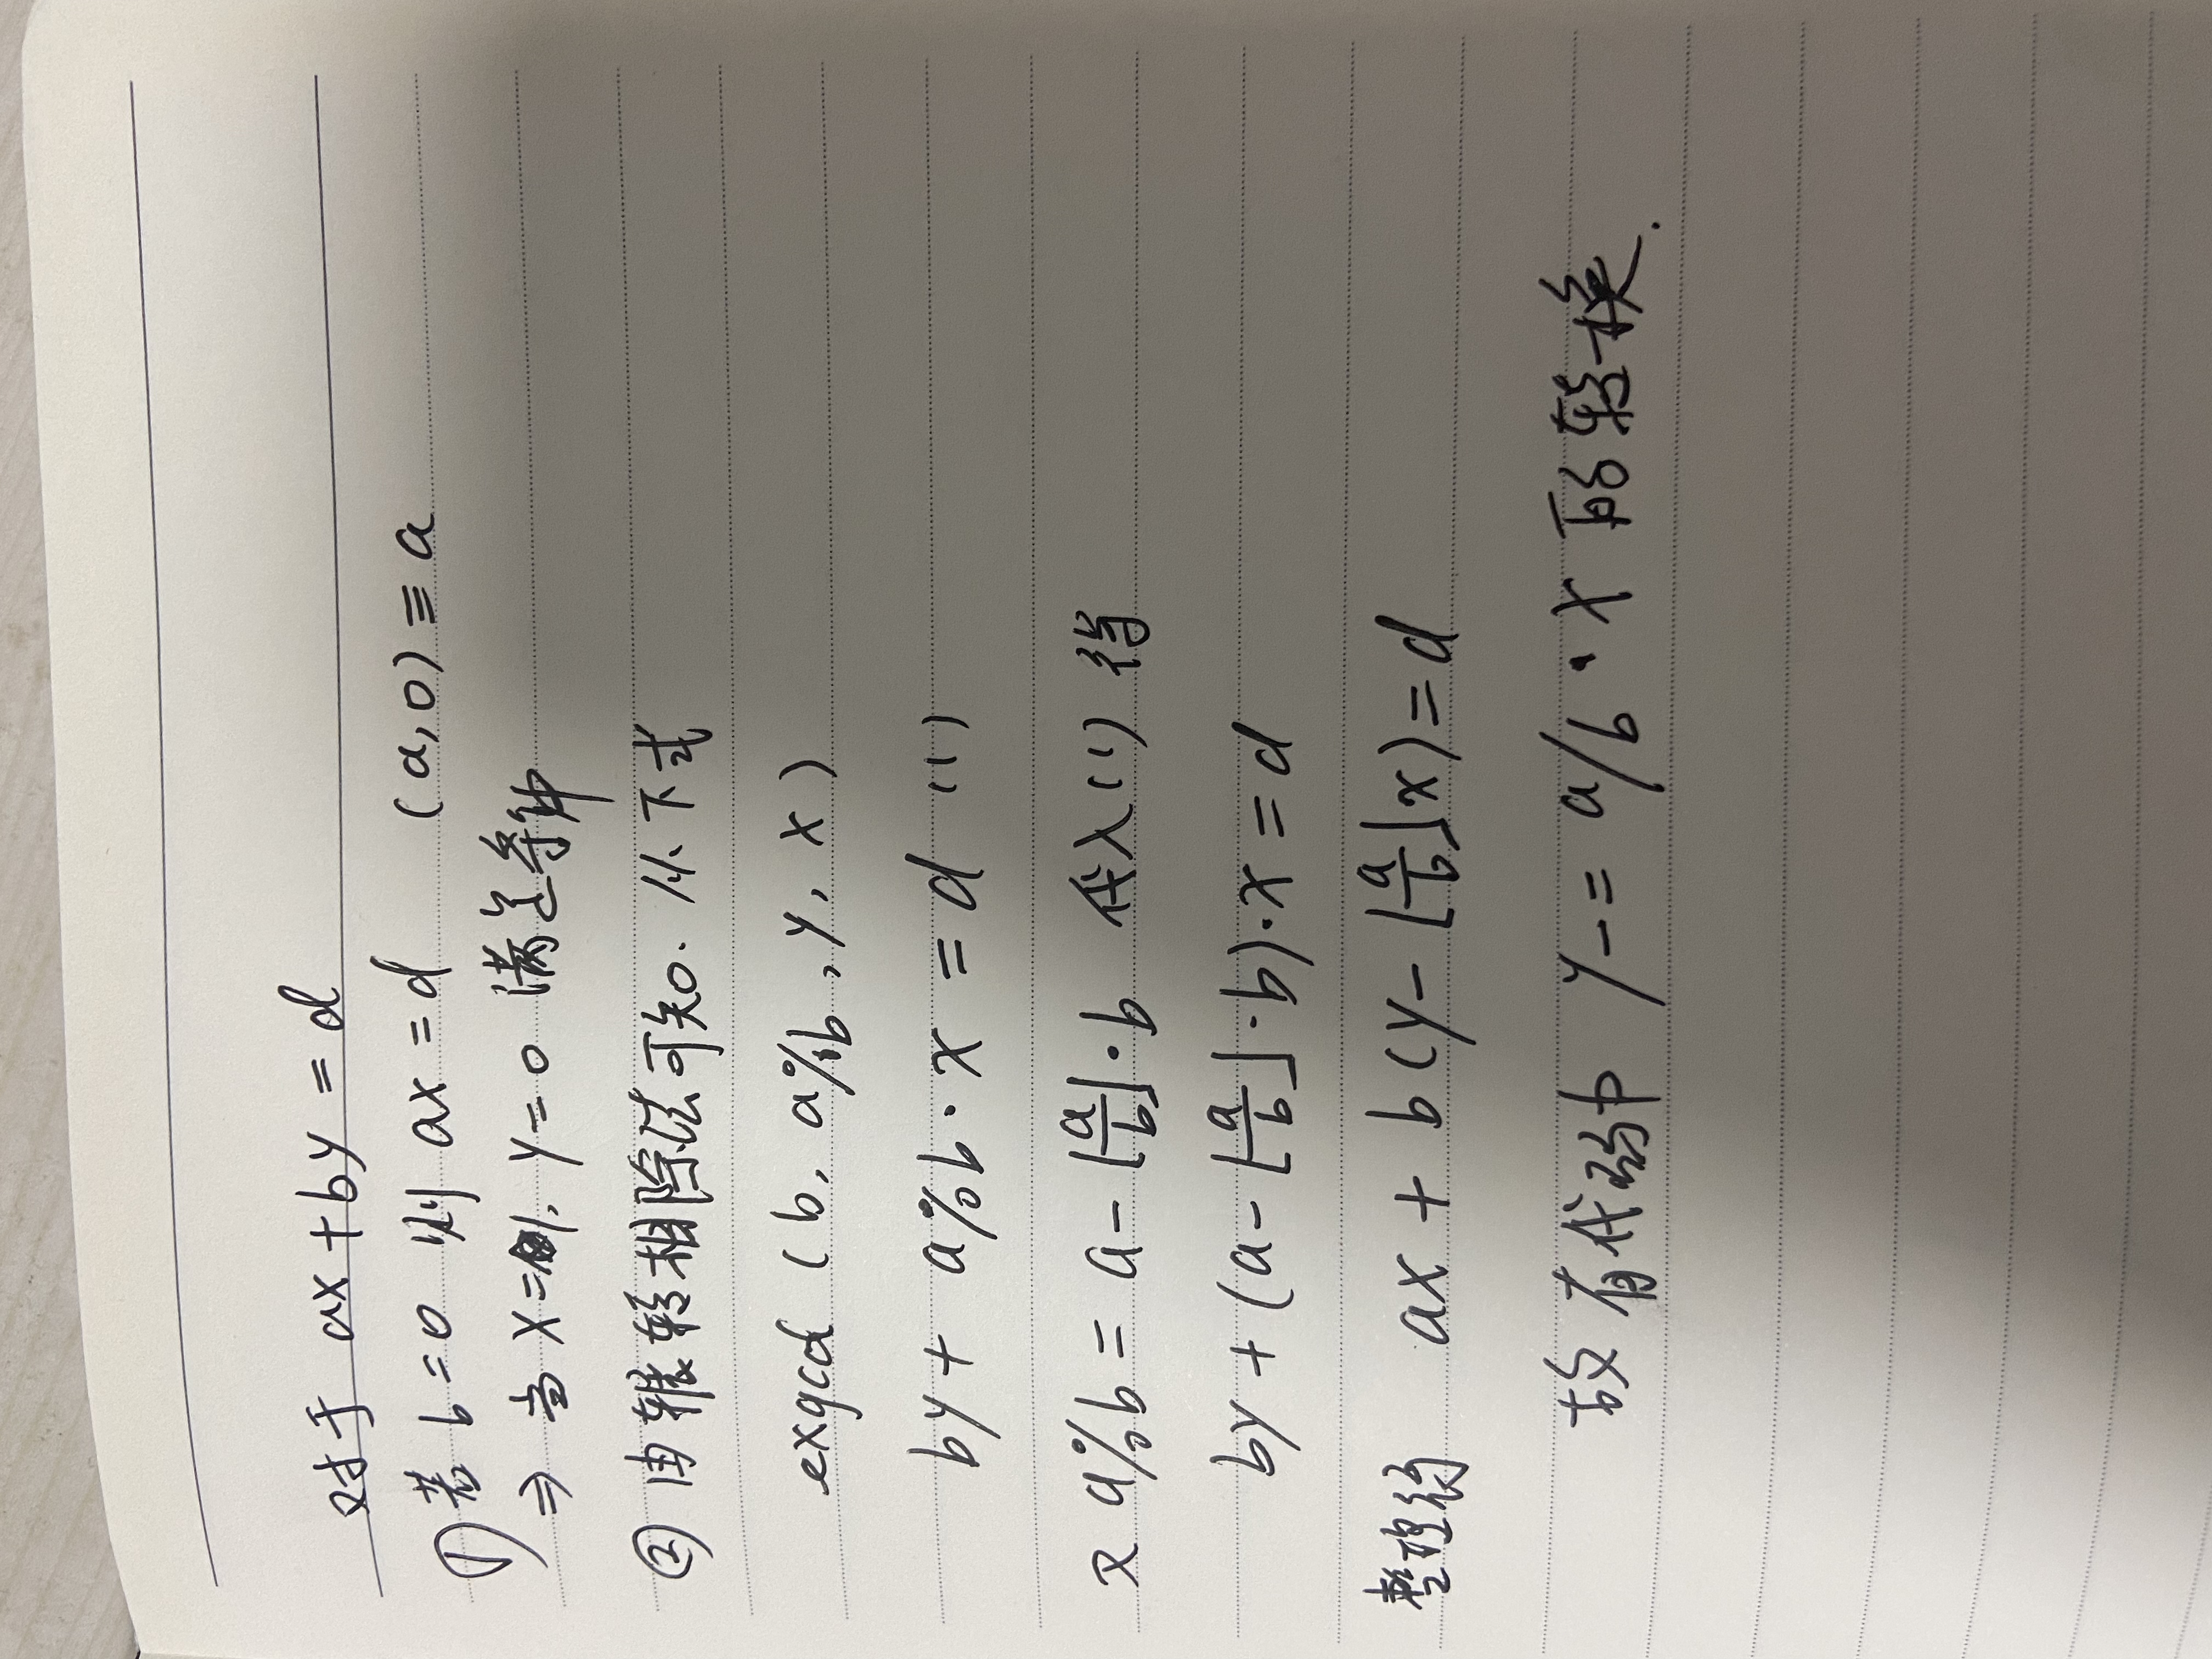 对于 ax + by = d
① 若 b = 0 则 ax = d (a, 0) ≡ a
⇒ 当 x = 1, y = 0 满足条件
② 由辗转相除法可知. 从下式
exgcd (b, a%b, y, x)
by + a%b · x = d (1)
又 a%b = a - ⌊a/b⌋·b 代入(1)得
by + (a - ⌊a/b⌋·b)·x = d
整理得 ax + b(y - ⌊a/b⌋x) = d
故有代码中 y -= a/b · x 的转换.